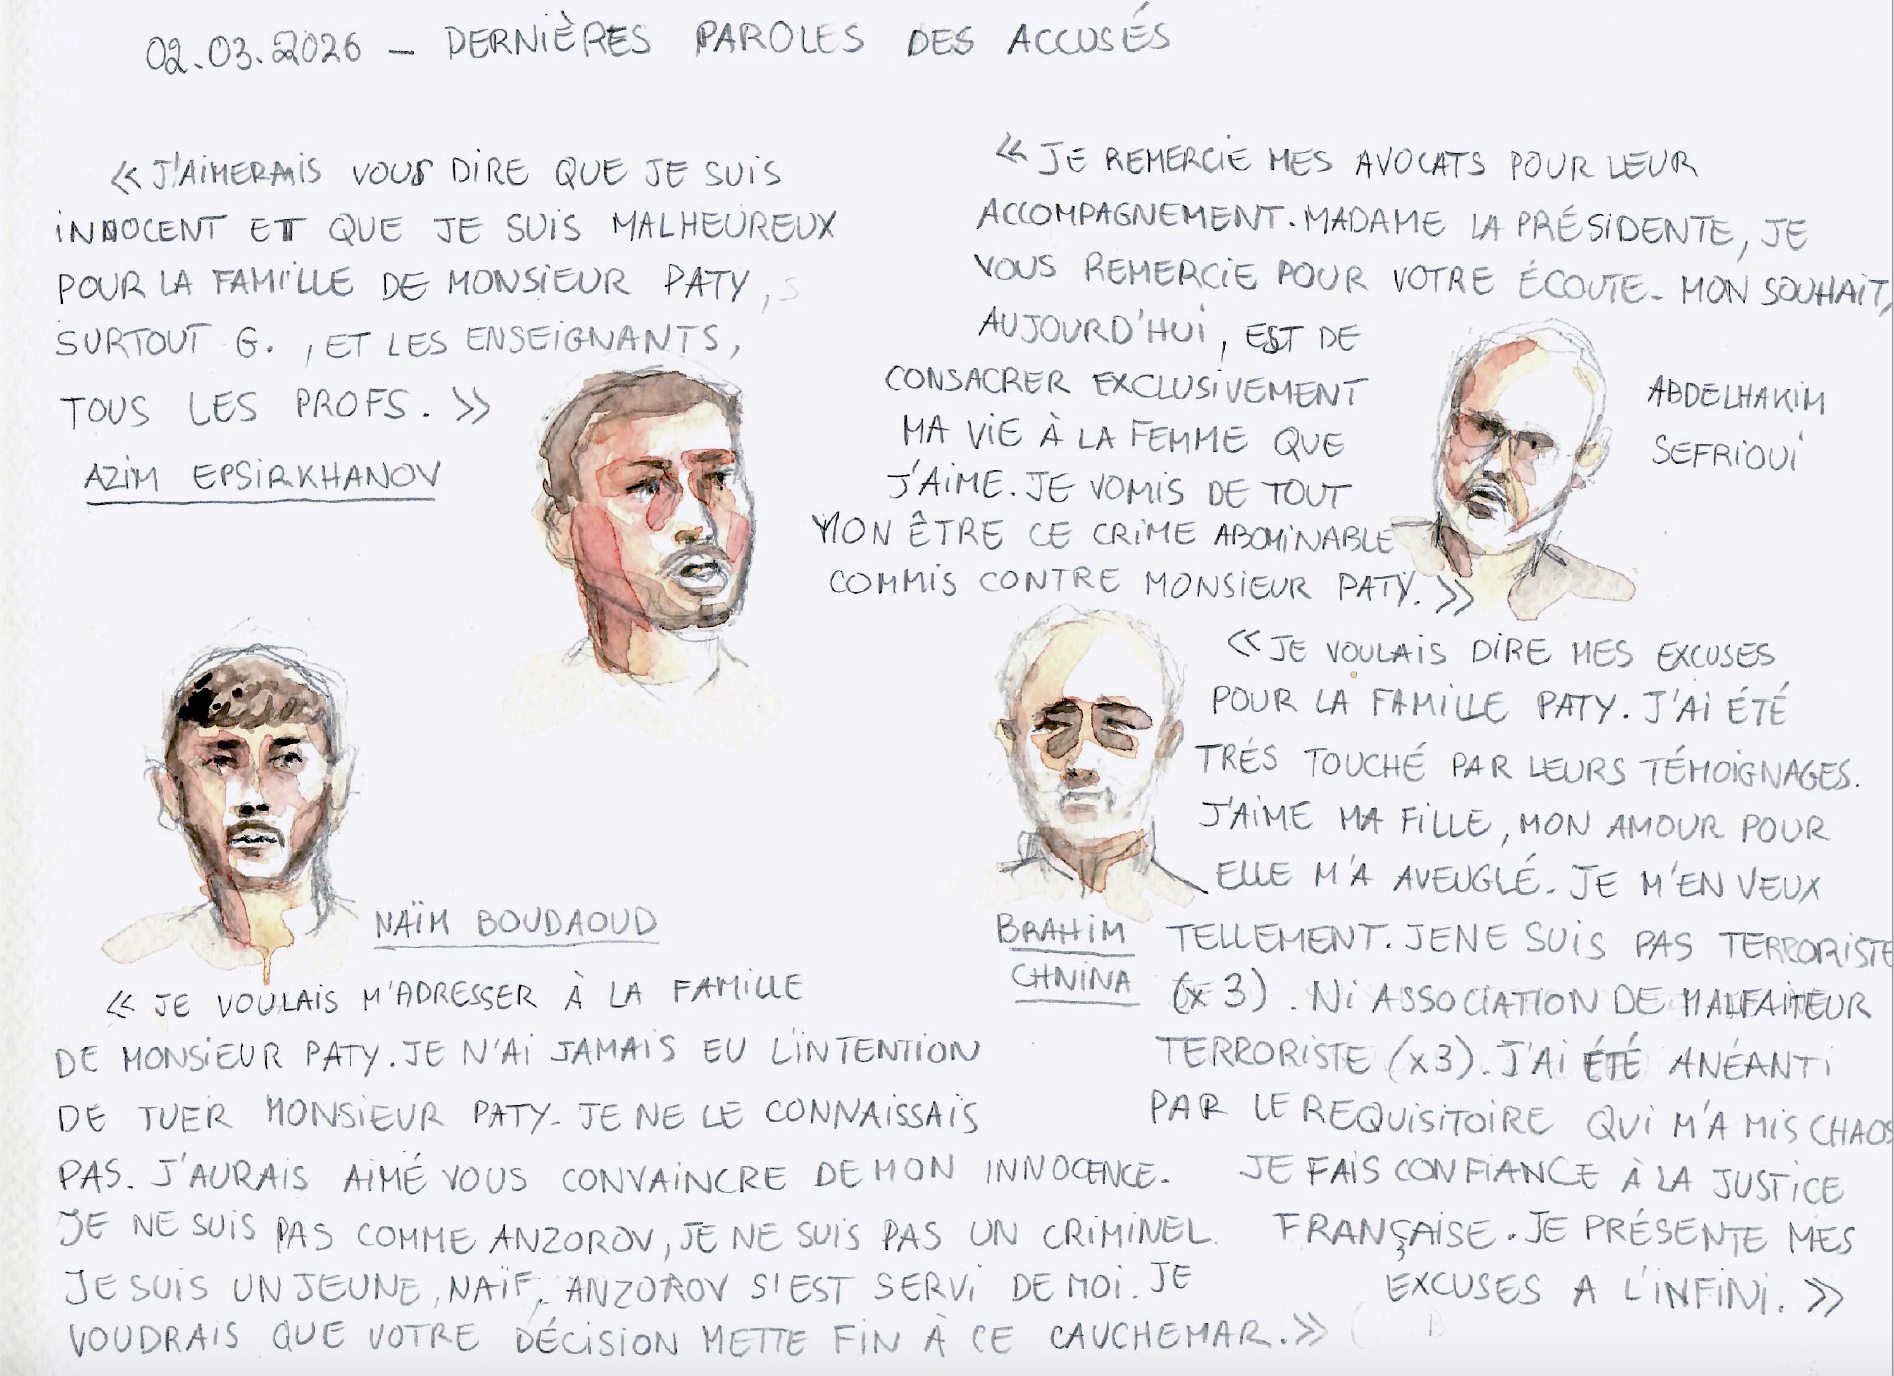 02.03.2026 – DERNIÈRES PAROLES DES ACCUSÉS
« J'AIMERAIS VOUS DIRE QUE JE SUIS
INNOCENT ET QUE JE SUIS MALHEUREUX
POUR LA FAMILLE DE MONSIEUR PATY,
SURTOUT G. , ET LES ENSEIGNANTS,
TOUS LES PROFS. »
AZIM EPSIRKHANOV
« JE REMERCIE MES AVOCATS POUR LEUR
ACCOMPAGNEMENT. MADAME LA PRÉSIDENTE, JE
VOUS REMERCIE POUR VOTRE ÉCOUTE. MON SOUHAIT,
AUJOURD'HUI, EST DE
CONSACRER EXCLUSIVEMENT
MA VIE À LA FEMME QUE
J'AIME. JE VOMIS DE TOUT
MON ÊTRE CE CRIME ABOMINABLE
COMMIS CONTRE MONSIEUR PATY. »
ABDELHAKIM
SEFRIOUI
NAÏM BOUDAOUD
« JE VOULAIS M'ADRESSER À LA FAMILLE
DE MONSIEUR PATY. JE N'AI JAMAIS EU L'INTENTION
DE TUER MONSIEUR PATY. JE NE LE CONNAISSAIS
PAS. J'AURAIS AIMÉ VOUS CONVAINCRE DE MON INNOCENCE.
JE NE SUIS PAS COMME ANZOROV, JE NE SUIS PAS UN CRIMINEL.
JE SUIS UN JEUNE, NAÏF. ANZOROV S'EST SERVI DE MOI. JE
VOUDRAIS QUE VOTRE DÉCISION METTE FIN À CE CAUCHEMAR. »
« JE VOULAIS DIRE MES EXCUSES
POUR LA FAMILLE PATY. J'AI ÉTÉ
TRÉS TOUCHÉ PAR LEURS TÉMOIGNAGES.
J'AIME MA FILLE, MON AMOUR POUR
ELLE M'A AVEUGLÉ. JE M'EN VEUX
TELLEMENT. JE NE SUIS PAS TERRORISTE
(x3). NI ASSOCIATION DE MALFAITEUR
TERRORISTE (x3). J'AI ÉTÉ ANÉANTI
PAR LE REQUISITOIRE QUI M'A MIS CHAOS
JE FAIS CONFIANCE À LA JUSTICE
FRANÇAISE. JE PRÉSENTE MES
EXCUSES A L'INFINI. »
BRAHIM
CHNINA